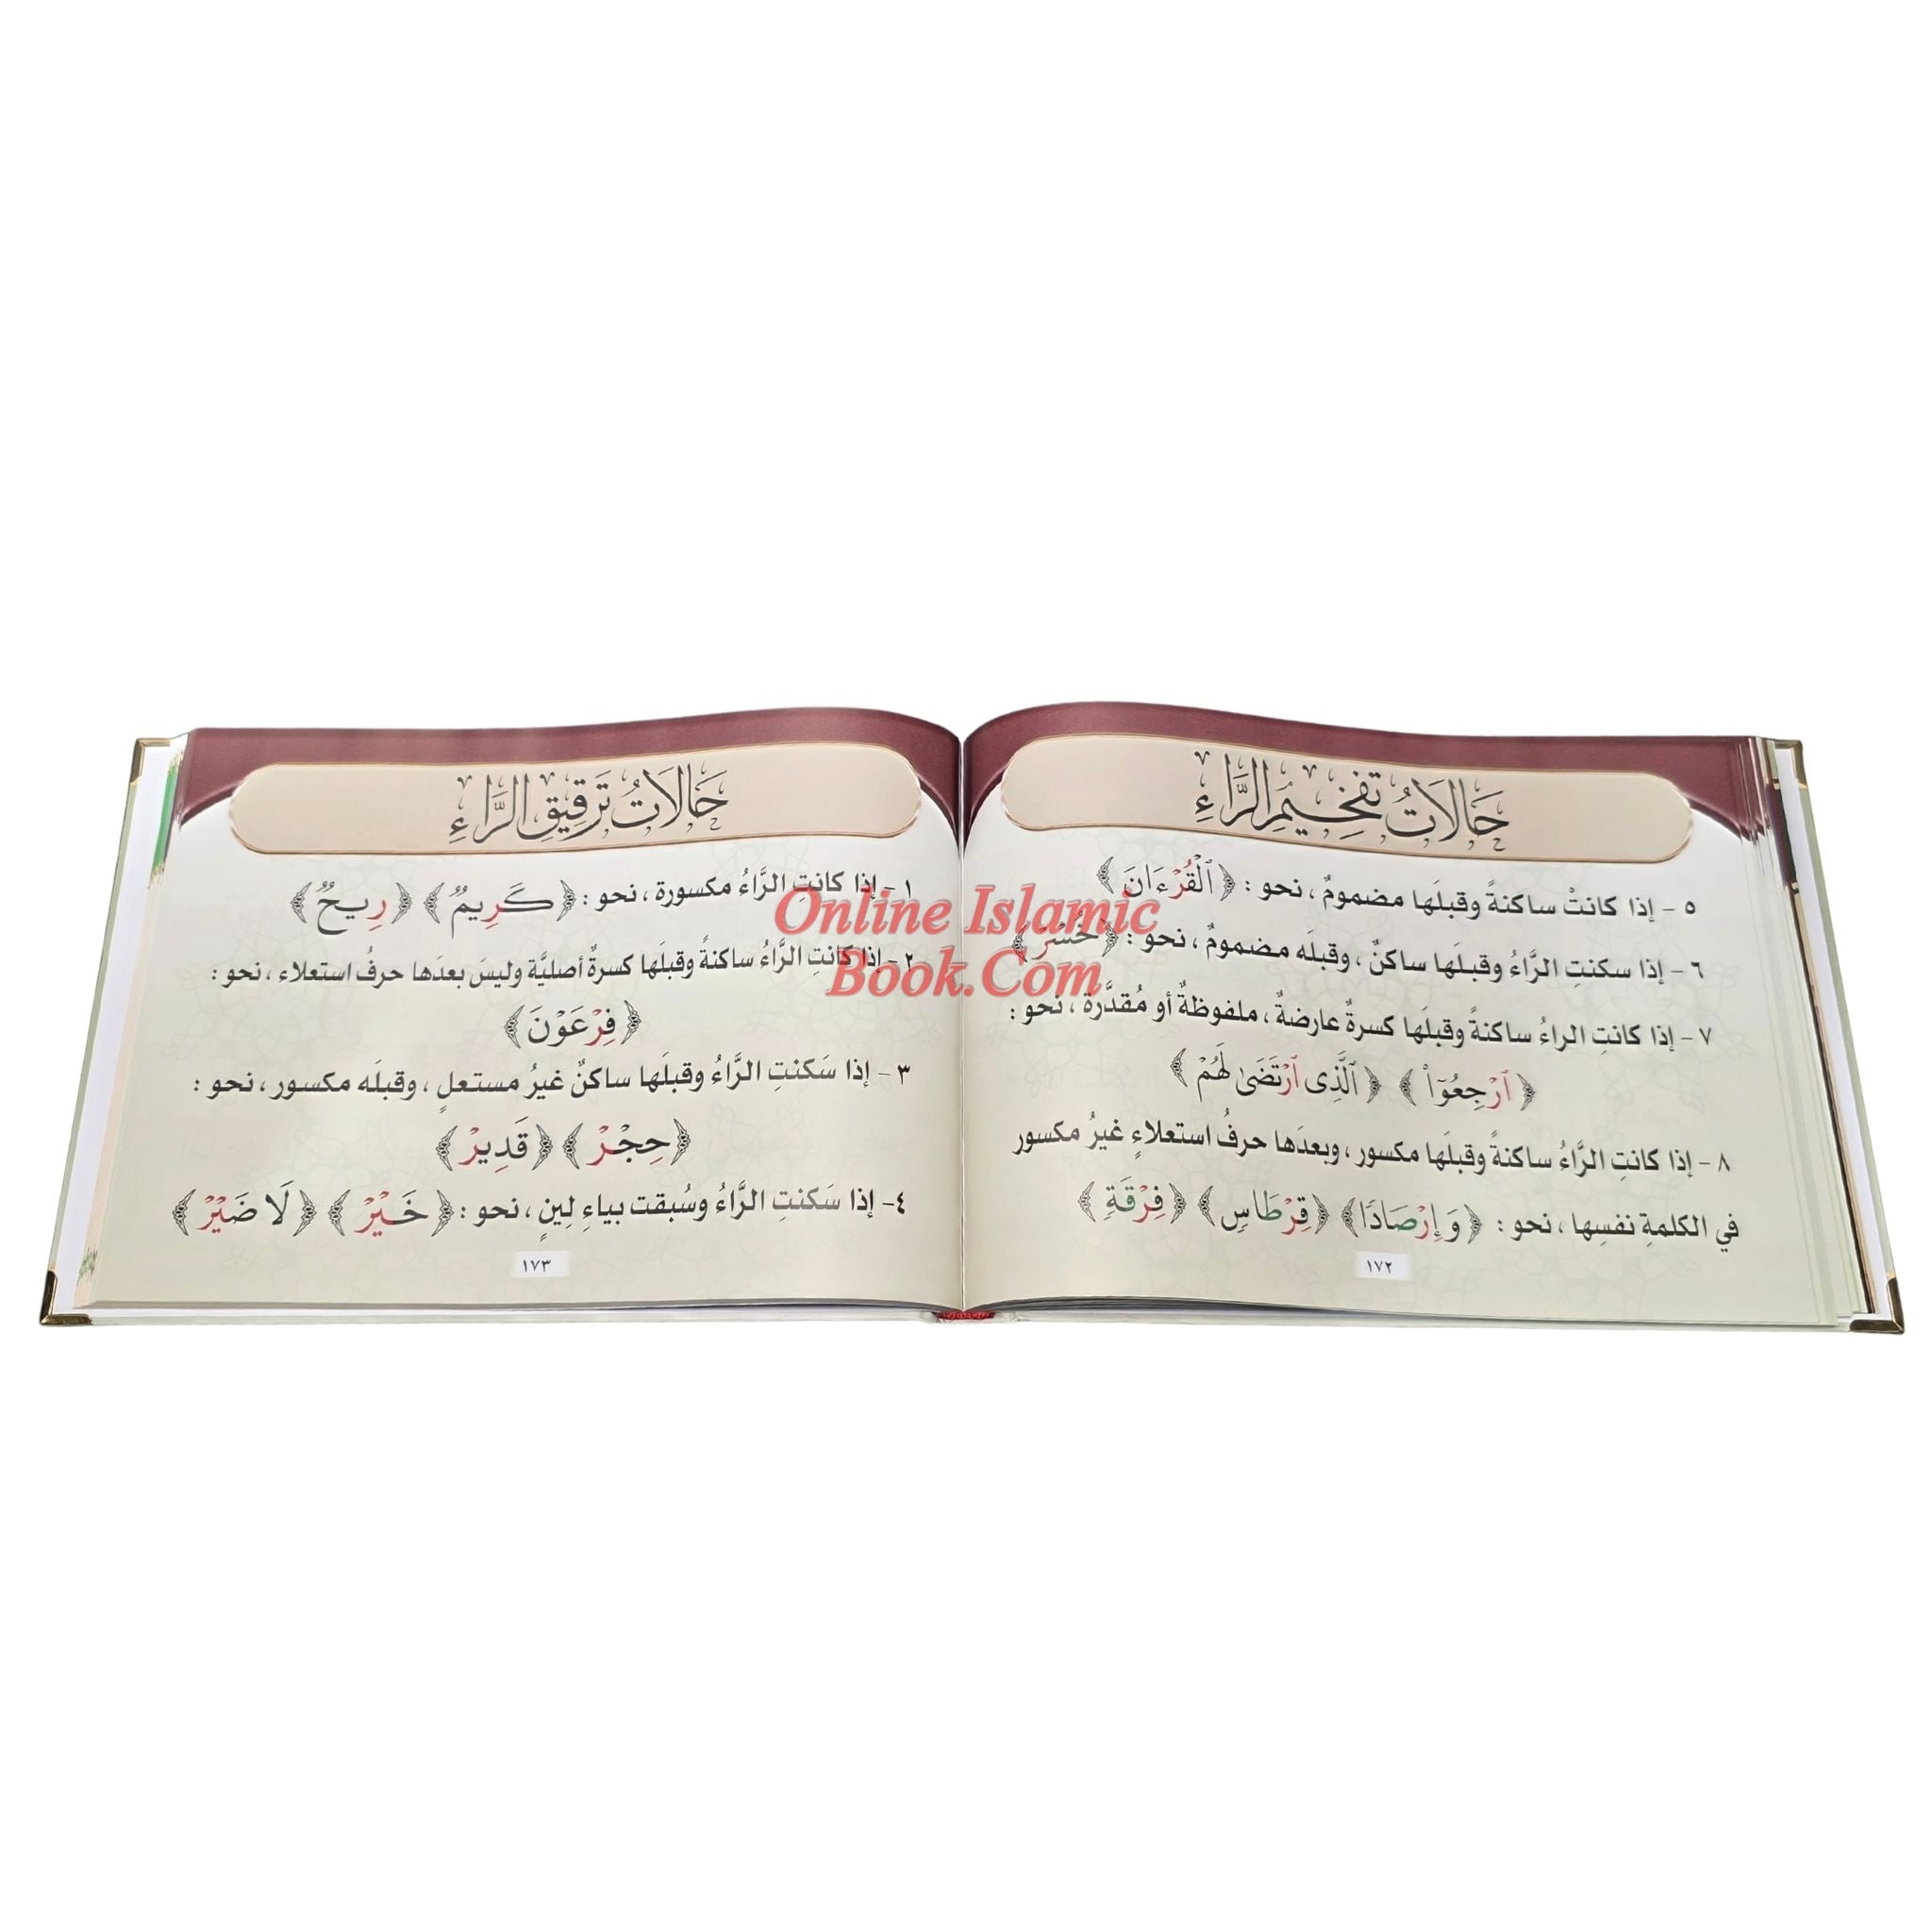 حَالَاتُ تَفْخِيمِ الرَّاءِ
٥ - إذا كانتْ ساكنةً وقبلَها مضمومٌ ، نحو : ﴿ ٱلْقُرْءَانَ ﴾
٦ - إذا سكنتِ الرَّاءُ وقبلَها ساكنٌ ، وقبلَه مضمومٌ ، نحو : ﴿ خُسْرٍ ﴾
٧ - إذا كانتِ الراءُ ساكنةً وقبلَها كسرةٌ عارضةٌ ، ملفوظةٌ أو مُقدَّرة ، نحو :
﴿ ٱرْجِعُوٓا۟ ﴾ ﴿ ٱلَّذِى ٱرْتَضَىٰ لَهُمْ ﴾
٨ - إذا كانتِ الرَّاءُ ساكنةً وقبلَها مكسور ، وبعدَها حرفُ استعلاءٍ غيرُ مكسور
في الكلمةِ نفسِها ، نحو : ﴿ وَإِرْصَادًا ﴾ ﴿ قِرْطَاسٍ ﴾ ﴿ فِرْقَةٍ ﴾
١٧٢
حَالَاتُ تَرْقِيقِ الرَّاءِ
١ - إذا كانتِ الرَّاءُ مكسورة ، نحو : ﴿ كَرِيمٌ ﴾ ﴿ رِيحٌ ﴾
٢ - إذا كانتِ الرَّاءُ ساكنةً وقبلَها كسرةٌ أصليَّة وليسَ بعدَها حرفُ استعلاء ، نحو :
﴿ فِرْعَوْنَ ﴾
٣ - إذا سَكنتِ الرَّاءُ وقبلَها ساكنٌ غيرُ مستعلٍ ، وقبلَه مكسور ، نحو :
﴿ حِجْرْ ﴾ ﴿ قَدِيرْ ﴾
٤- إذا سَكنتِ الرَّاءُ وسُبقت بياءِ لِينٍ ، نحو : ﴿ خَيْرْ ﴾ ﴿ لَا ضَيْرْ ﴾
١٧٣
Online Islamic
Book.Com